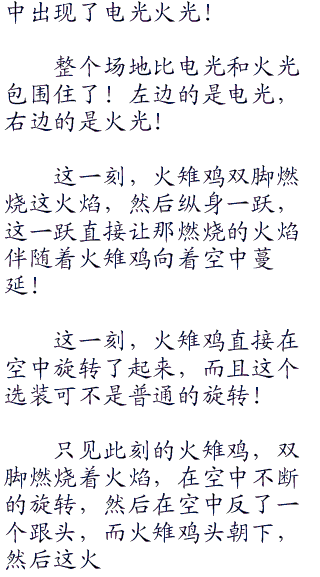 中出现了电光火光！
整个场地比电光和火光
包围住了！左边的是电光，
右边的是火光！
这一刻，火雉鸡双脚燃
烧这火焰，然后纵身一跃，
这一跃直接让那燃烧的火焰
伴随着火雉鸡向着空中蔓
延！
这一刻，火雉鸡直接在
空中旋转了起来，而且这个
选装可不是普通的旋转！
只见此刻的火雉鸡，双
脚燃烧着火焰，在空中不断
的旋转，然后在空中反了一
个跟头，而火雉鸡头朝下，
然后这火